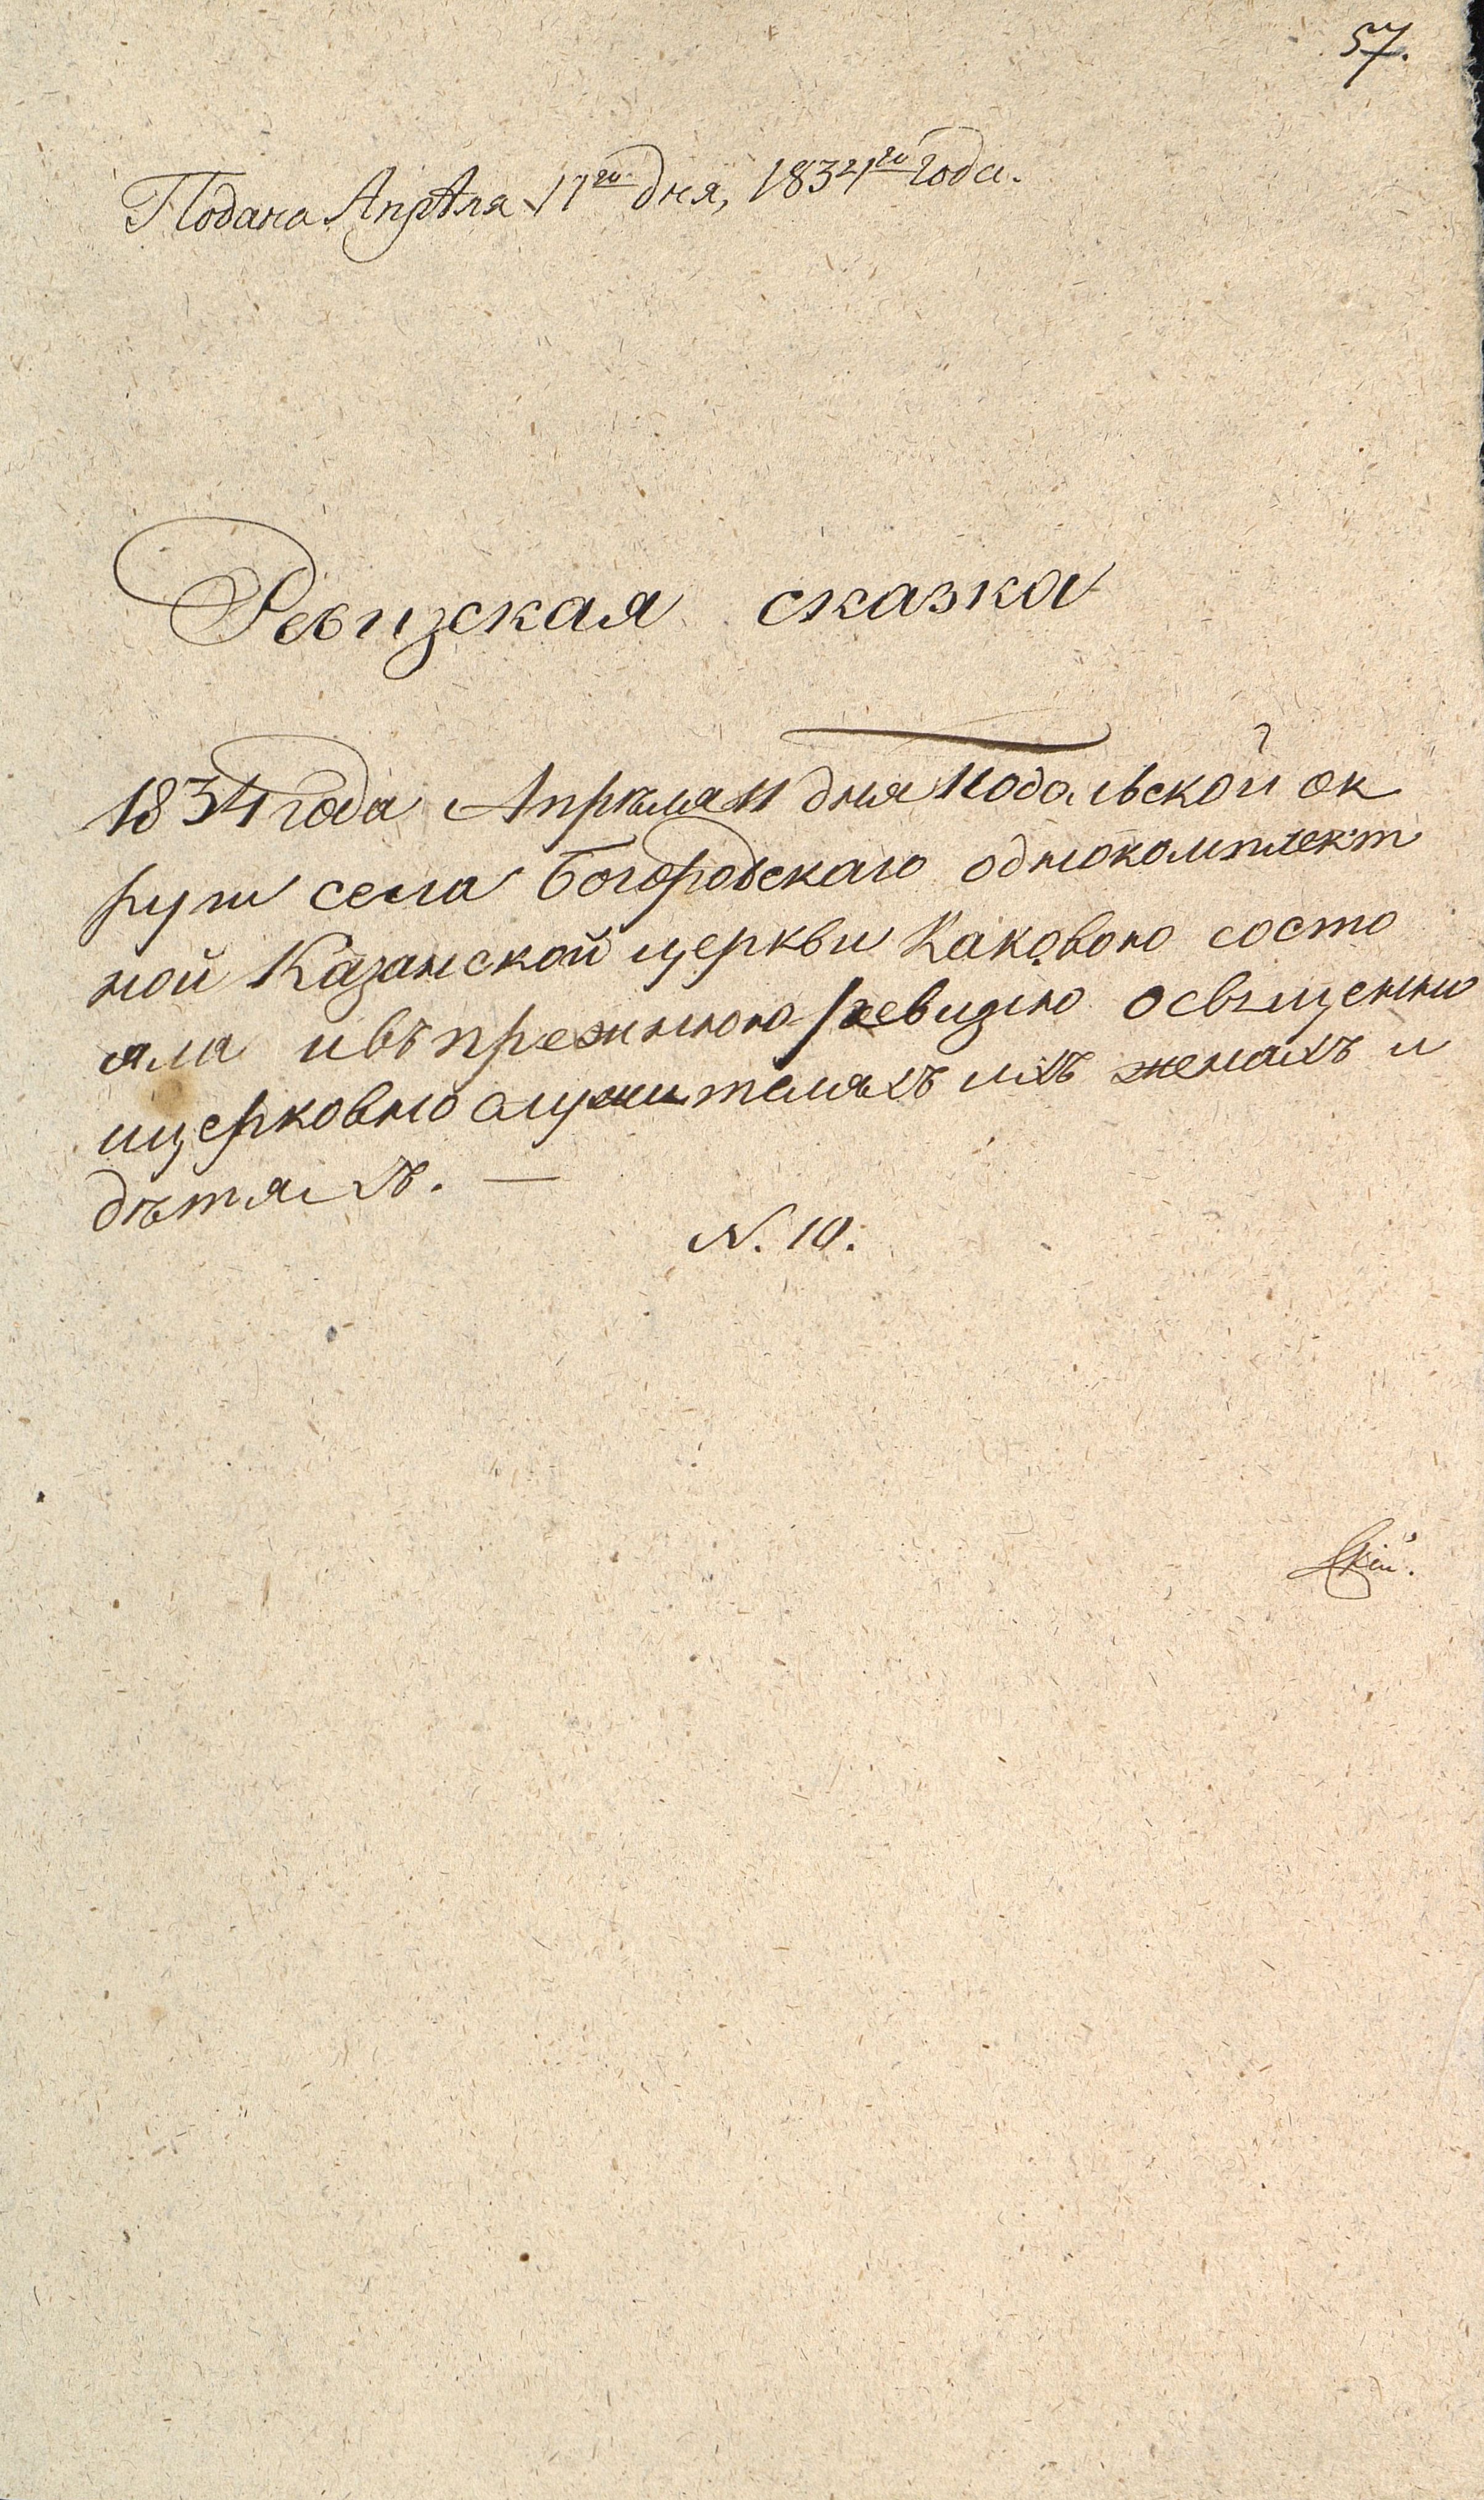 57.
Подана Апрѣля 17го дня, 1834го года.
Ревизская сказка
1834 года Апрѣля 11 дня Подольской ок
руги села Богородскаго однокомплект
ной Казанской церкви Каковою состо
яла ивъ прежнюю ревизию освященно
ицерковно служителяхъ ихъ женахъ и
дѣтяхъ. —
N. 10.